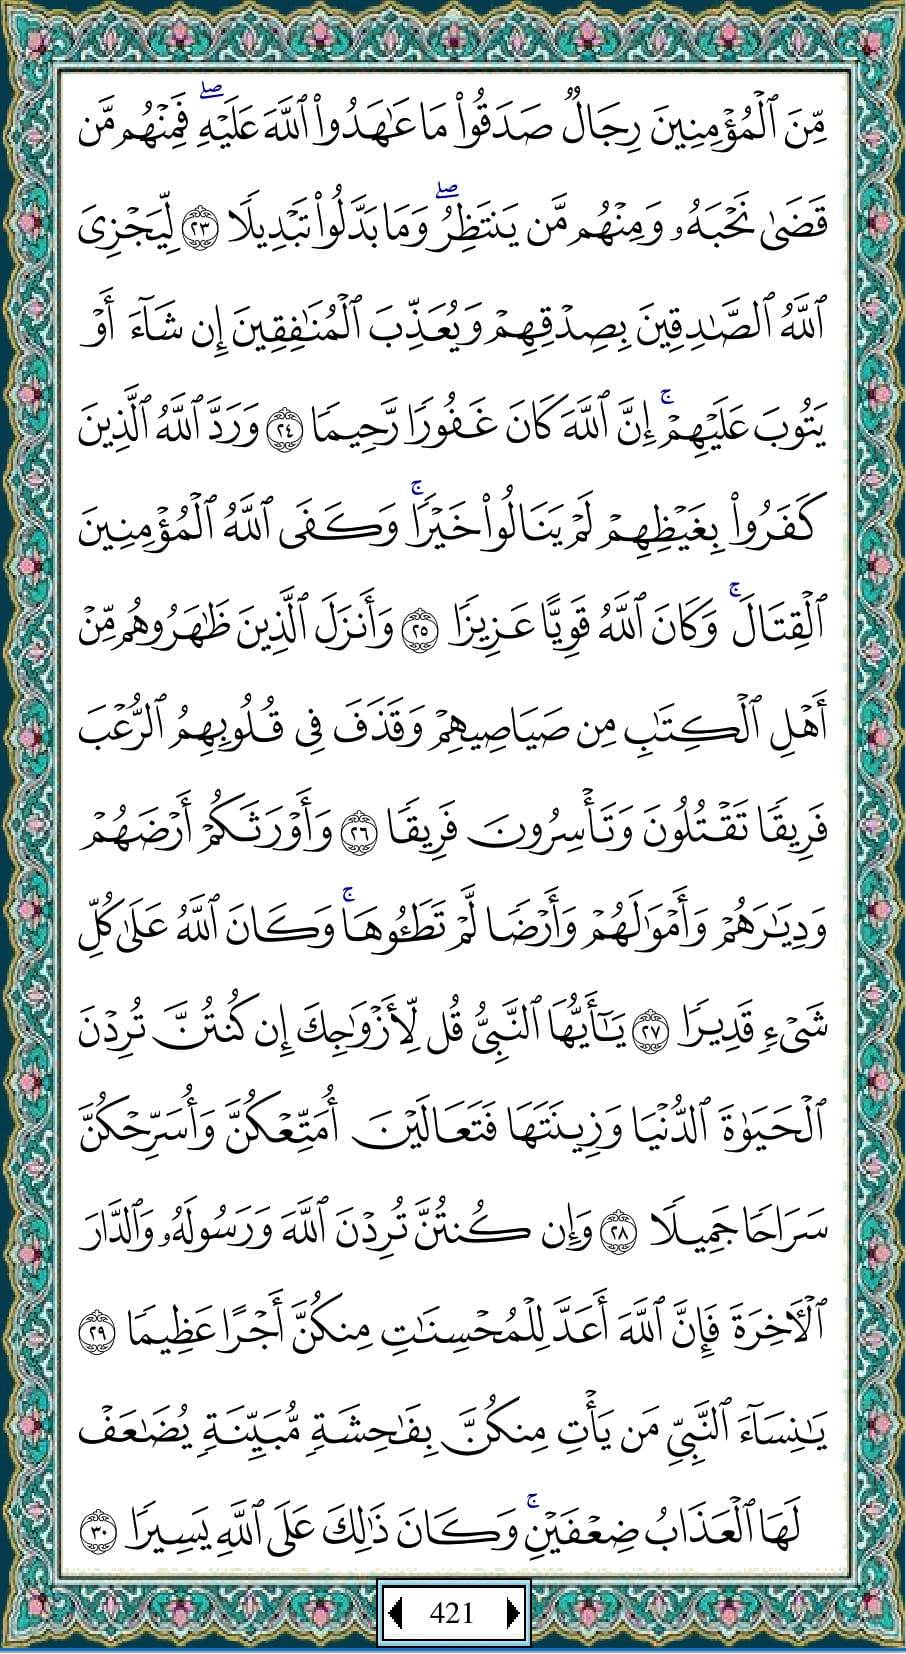 مِّنَ ٱلْمُؤْمِنِينَ رِجَالٌ صَدَقُوا۟ مَا عَـٰهَدُوا۟ ٱللَّهَ عَلَيْهِ ۖ فَمِنْهُم مَّن
قَضَىٰ نَحْبَهُۥ وَمِنْهُم مَّن يَنتَظِرُ ۖ وَمَا بَدَّلُوا۟ تَبْدِيلًا ٢٣ لِّيَجْزِىَ
ٱللَّهُ ٱلصَّـٰدِقِينَ بِصِدْقِهِمْ وَيُعَذِّبَ ٱلْمُنَـٰفِقِينَ إِن شَآءَ أَوْ
يَتُوبَ عَلَيْهِمْ ۚ إِنَّ ٱللَّهَ كَانَ غَفُورًا رَّحِيمًا ٢٤ وَرَدَّ ٱللَّهُ ٱلَّذِينَ
كَفَرُوا۟ بِغَيْظِهِمْ لَمْ يَنَالُوا۟ خَيْرًا ۚ وَكَفَى ٱللَّهُ ٱلْمُؤْمِنِينَ
ٱلْقِتَالَ ۚ وَكَانَ ٱللَّهُ قَوِيًّا عَزِيزًا ٢٥ وَأَنزَلَ ٱلَّذِينَ ظَـٰهَرُوهُم مِّنْ
أَهْلِ ٱلْكِتَـٰبِ مِن صَيَاصِيهِمْ وَقَذَفَ فِى قُلُوبِهِمُ ٱلرُّعْبَ
فَرِيقًا تَقْتُلُونَ وَتَأْسِرُونَ فَرِيقًا ٢٦ وَأَوْرَثَكُمْ أَرْضَهُمْ
وَدِيَـٰرَهُمْ وَأَمْوَٰلَهُمْ وَأَرْضًا لَّمْ تَطَـُٔوهَا ۚ وَكَانَ ٱللَّهُ عَلَىٰ كُلِّ
شَىْءٍ قَدِيرًا ٢٧ يَـٰٓأَيُّهَا ٱلنَّبِىُّ قُل لِّأَزْوَٰجِكَ إِن كُنتُنَّ تُرِدْنَ
ٱلْحَيَوٰةَ ٱلدُّنْيَا وَزِينَتَهَا فَتَعَالَيْنَ أُمَتِّعْكُنَّ وَأُسَرِّحْكُنَّ
سَرَاحًا جَمِيلًا ٢٨ وَإِن كُنتُنَّ تُرِدْنَ ٱللَّهَ وَرَسُولَهُۥ وَٱلدَّارَ
ٱلْـَٔاخِرَةَ فَإِنَّ ٱللَّهَ أَعَدَّ لِلْمُحْسِنَـٰتِ مِنكُنَّ أَجْرًا عَظِيمًا ٢٩
يَـٰنِسَآءَ ٱلنَّبِىِّ مَن يَأْتِ مِنكُنَّ بِفَـٰحِشَةٍ مُّبَيِّنَةٍ يُضَـٰعَفْ
لَهَا ٱلْعَذَابُ ضِعْفَيْنِ ۚ وَكَانَ ذَٰلِكَ عَلَى ٱللَّهِ يَسِيرًا ٣٠
421